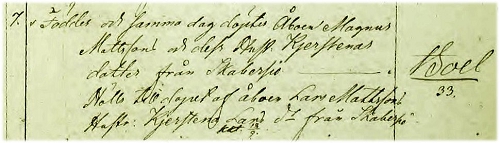 7. Föddes och samma dag döptes Åboen Magnus
Mattssons och dess Hust. Kjerstenas
dotter från Skabersjö
Boel
33.
Hölls till dopet af åboen Lars Mattssons
Hustr: Kjerstena Lars Dr från Skabersjö